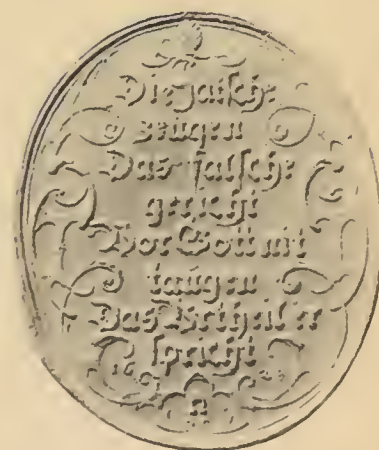 Die falsche
zeugen
Das falsche
gericht
Vor Gott nit
taugen
Das Vrtheil er
spricht